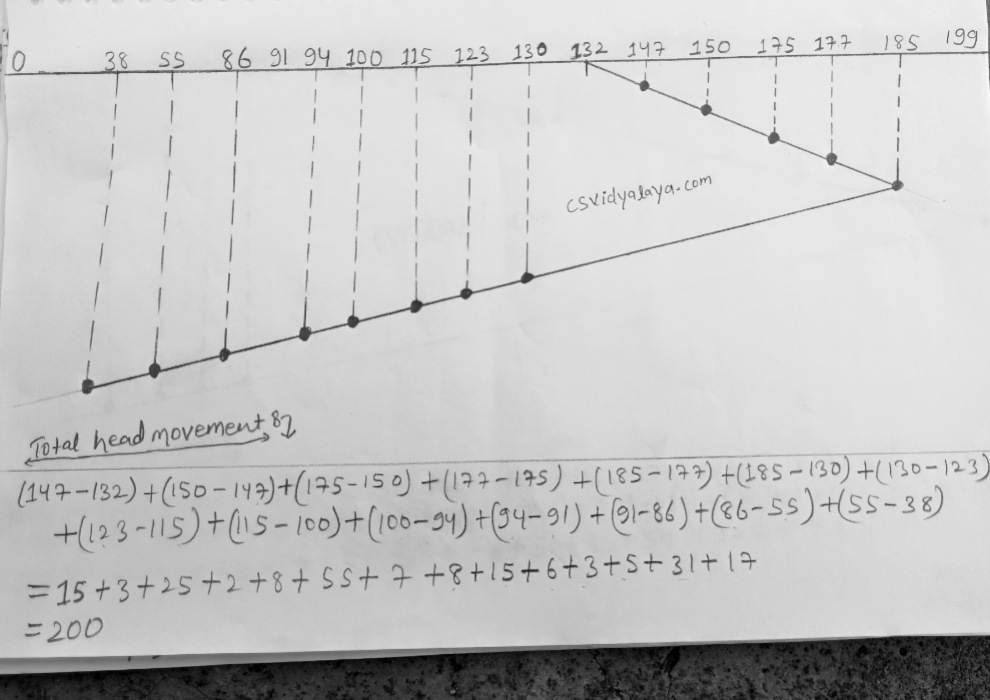 0 38 55 86 91 94 100 115 123 130 132 147 150 175 177 185 199
csvidyalaya.com
Total head movement :
(147-132)+(150-147)+(175-150)+(177-175)+(185-177)+(185-130)+(130-123)
+(123-115)+(115-100)+(100-94)+(94-91)+(91-86)+(86-55)+(55-38)
=15+3+25+2+8+55+7+8+15+6+3+5+31+17
=200